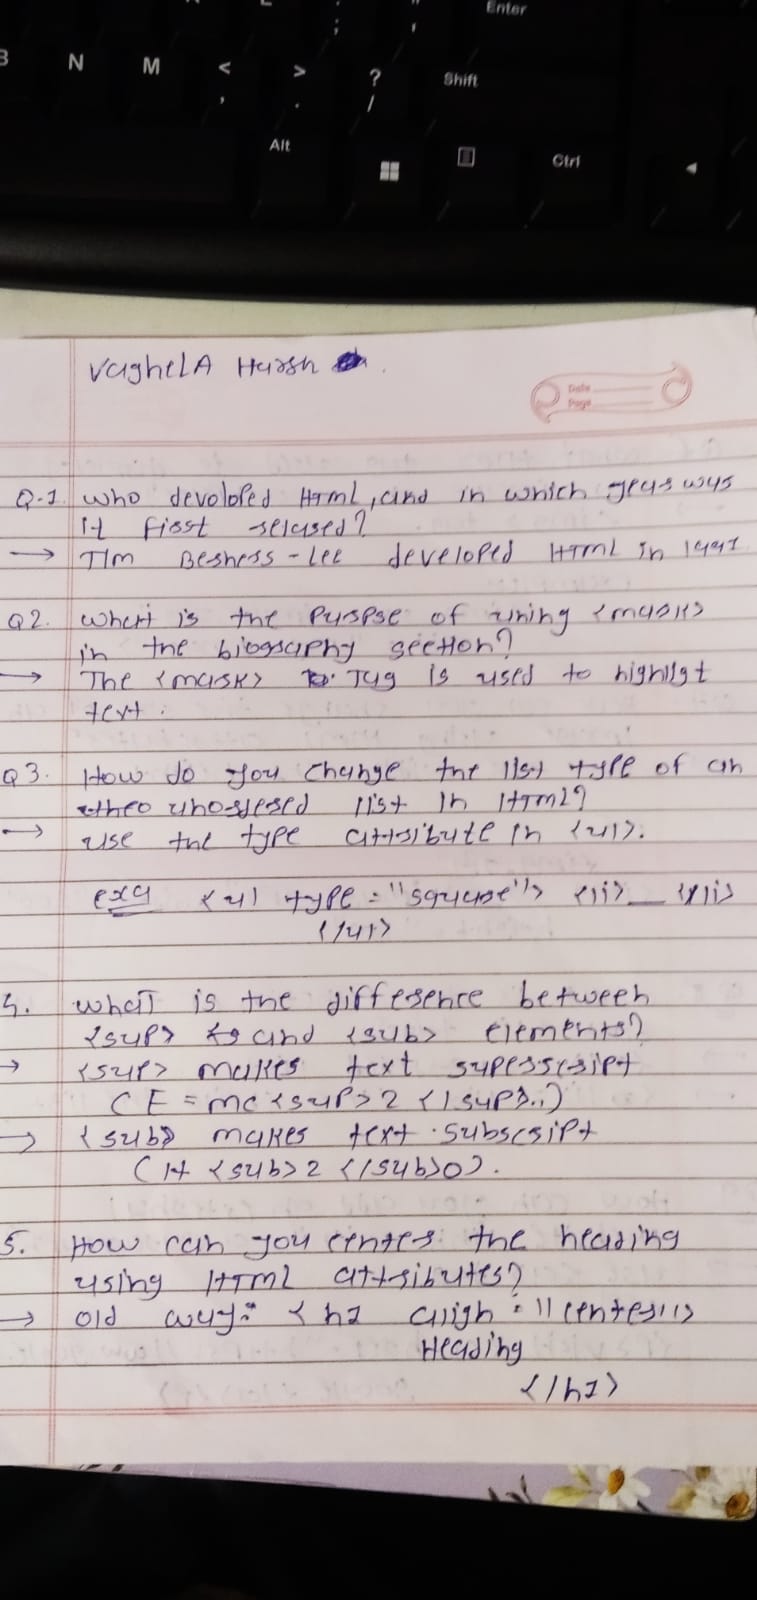 Enter
B N M < , > . ? / Shift
Alt Ctrl
VaghelA Harsh
Date
Page
Q-1. Who devoloped Html, and in which year was
it first relased?
→ TIm Berners-Lee developed HTML in 1991
Q2. What is the Purpse of using <mark>
in the biography section?
→ The <mark> Tag is used to highligt
text.
Q3. How do you change the list type of an
unordered list in HTML?
→ use the type attribute in <ul>.
exa <ul type="square"> <li>__</li>
</ul>
4. What is the difference between
<sup> and <sub> elements?
→ <sup> makes text superscript
(E=mc<sup>2</sup>..)
→ <sub> makes text subscript
(H<sub>2</sub>O).
5. How can you center the heading
using HTML attributes?
→ old way: <h1 align="center">
Heading
</h1>